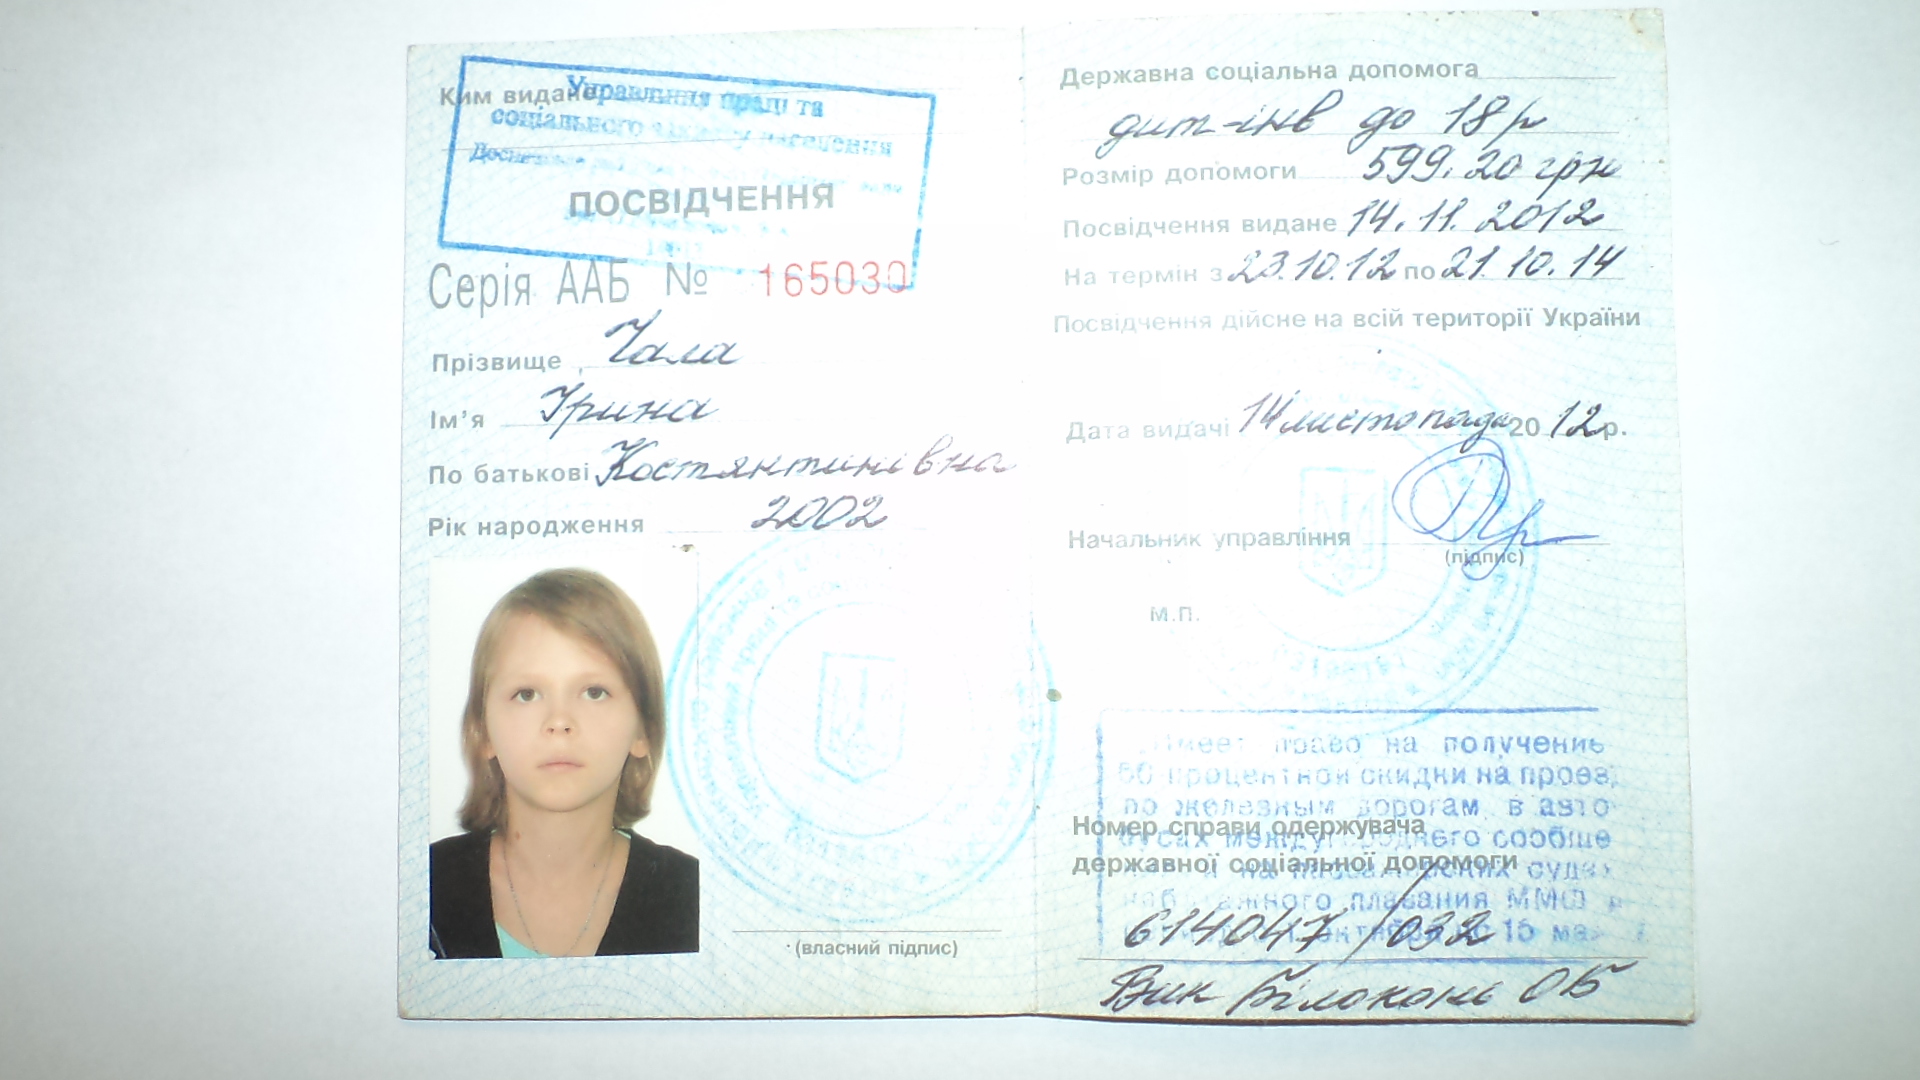 Ким видано
Управління праці та
соціального захисту населення
ПОСВІДЧЕННЯ
Серія ААБ № 165030
Прізвище Чала
Ім'я Ірина
По батькові Костянтинівна
Рік народження 2002
(власний підпис)
Державна соціальна допомога
дит-інв до 18 р
Розмір допомоги 599.20 грн
Посвідчення видане 14.11.2012
На термін з 23.10.12 по 21.10.14
Посвідчення дійсне на всій території України
Дата видачі 14 листопада 2012 р.
Начальник управління
(підпис)
М.П.
Имеет право на получение
50 процентной скидки на проезд
по железным дорогам, в авто
Номер справи одержувача
бусах междугороднего сообще
державної соціальної допомоги
плавания ММФ
614047/032
15 ма
Вик Білоконь ОБ